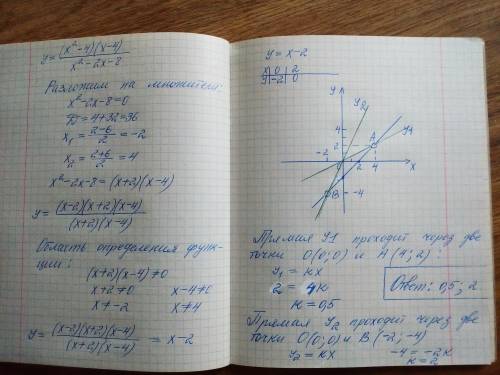 y = (x²-4)(x-4) / x²-2x-8
Разложим на множители:
x²-2x-8=0
D=4+32=36
x₁ = 2-6 / 2 = -2
x₂ = 2+6 / 2 = 4
x²-2x-8=(x+2)(x-4)
y = (x-2)(x+2)(x-4) / (x+2)(x-4)
Область определения функ-
ции:
(x+2)(x-4)≠0
x+2≠0 x-4≠0
x≠-2 x≠4
y = (x-2)(x+2)(x-4) / (x+2)(x-4) = x-2
y = x-2
x 0 2
y -2 0
y y₂
4 A y₁
2
-2 0 2 4 x
B -4
Прямая y1 проходит через две
точки O(0;0) и A(4;2):
y₁ = kx
2 = 4k
k = 0,5
Ответ: 0,5; 2
Прямая y₂ проходит через две
точки O(0;0) и B(-2;-4)
y₂ = kx -4=-2k
k=2